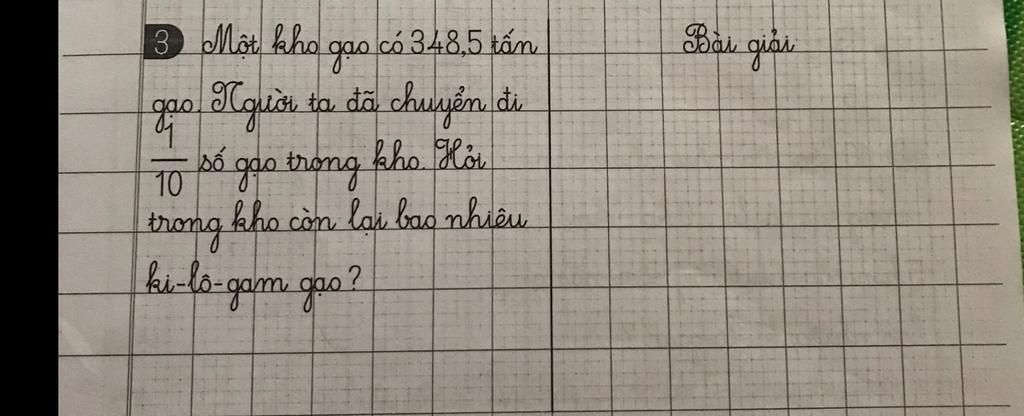 3 Một kho gạo có 348,5 tấn
gạo. Người ta đã chuyển đi
1/10 số gạo trong kho. Hỏi
trong kho còn lại bao nhiêu
ki-lô-gam gạo?
Bài giải